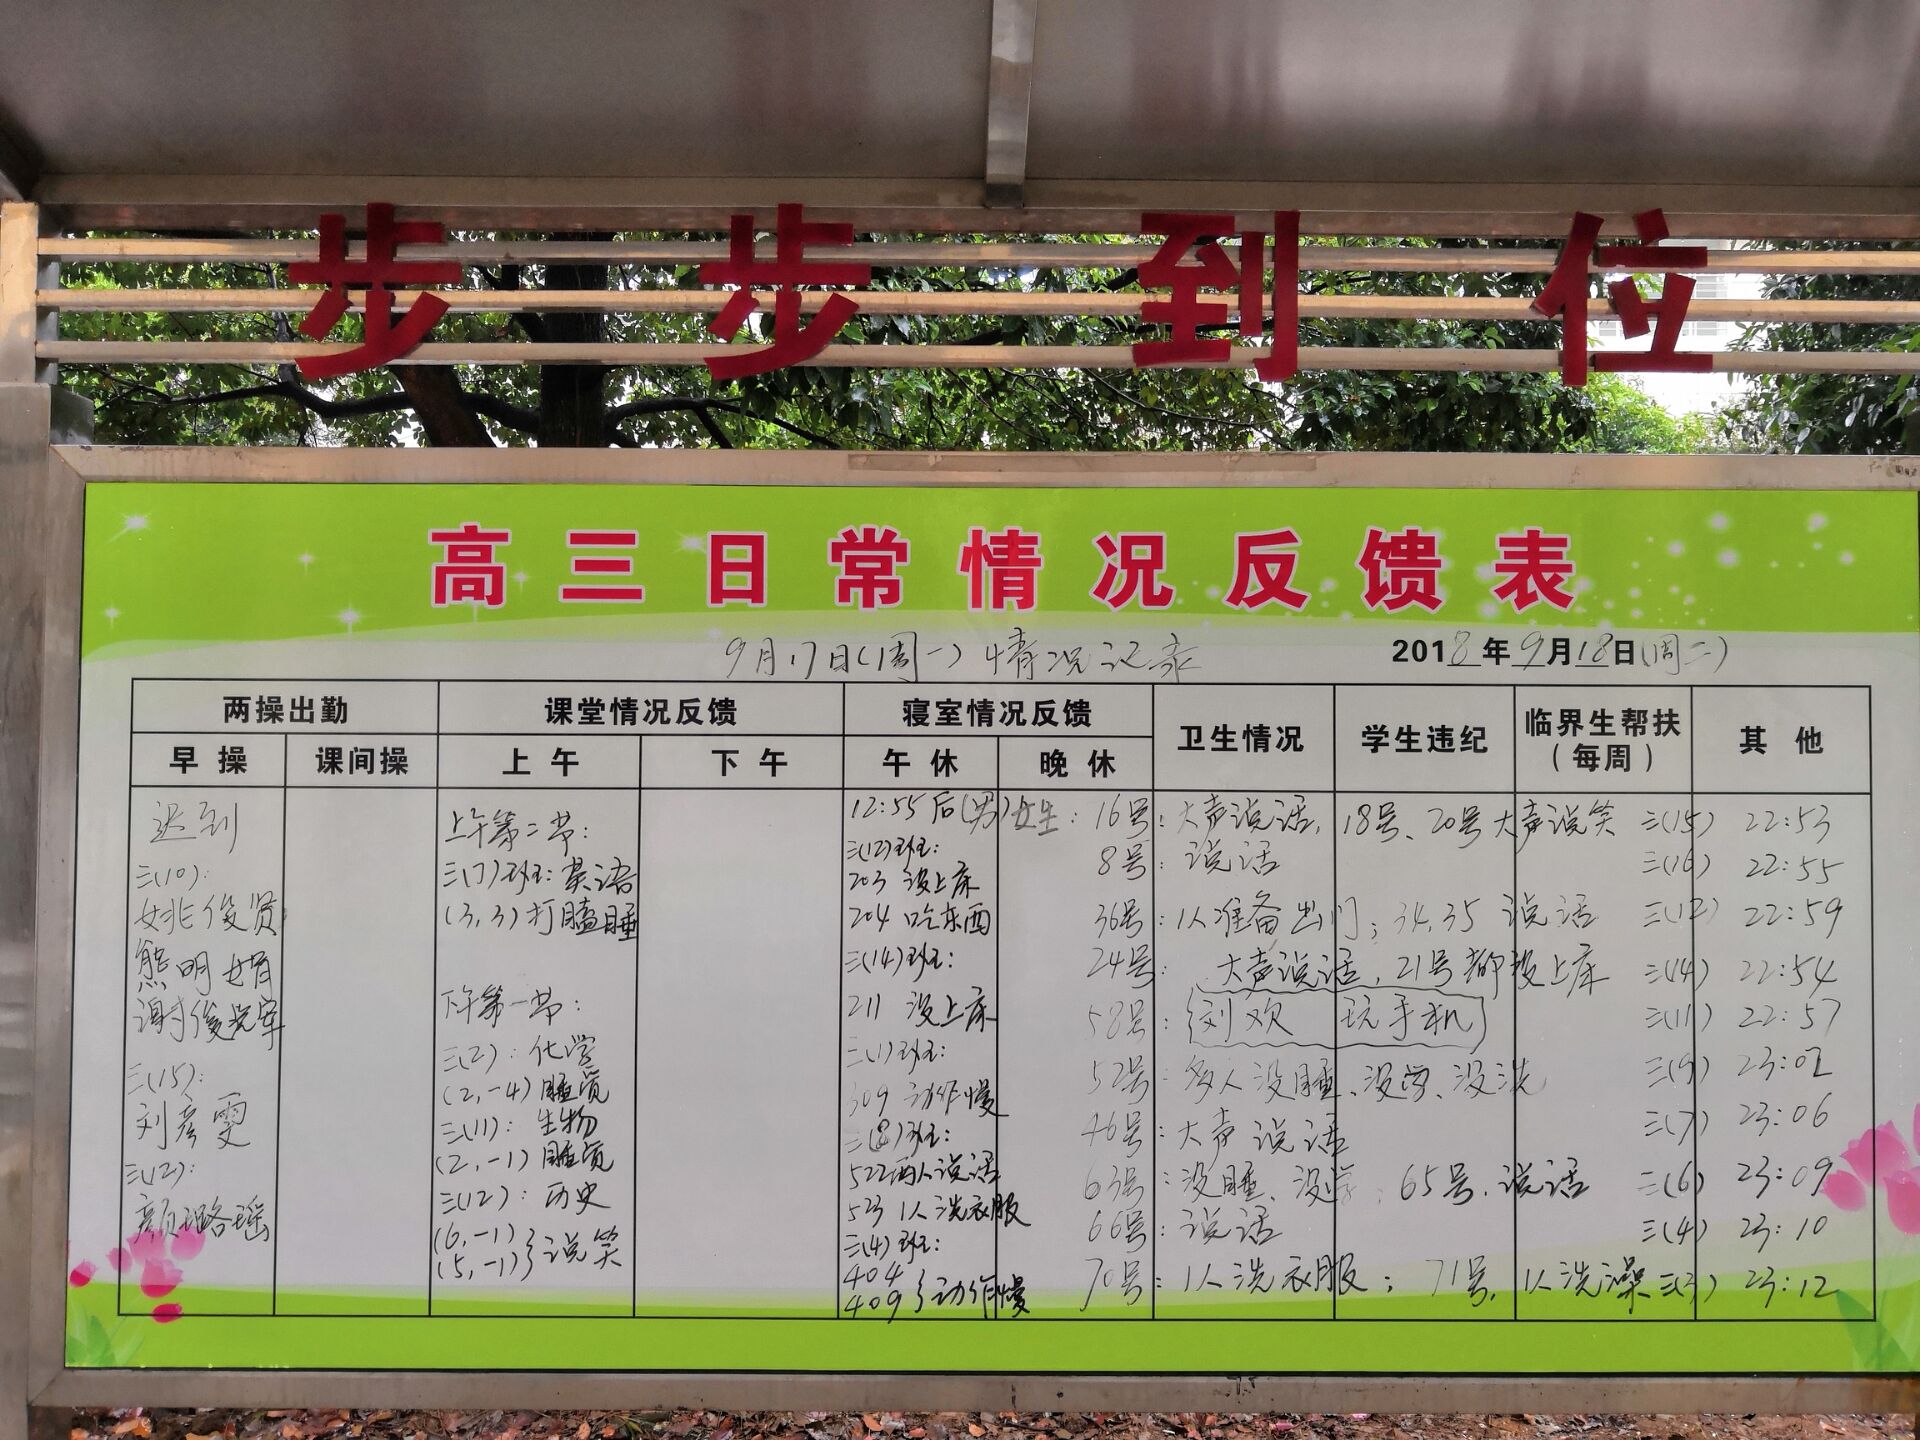 步步到位
高三日常情况反馈表
9月17日(周一)情况记录
2018年9月18日(周二)
两操出勤 课堂情况反馈 寝室情况反馈 卫生情况 学生违纪 临界生帮扶(每周) 其他
早操 课间操 上午 下午 午休 晚休
迟到
三(10):
姚俊贤
熊明婧
谢俊
三(15):
刘彦雯
三(12):
颜璐瑶
上午第二节:
三(7)班:英语
(3,3)打瞌睡
下午第一节:
三(2):化学
(2,-4)睡觉
三(11):生物
(2,-1)睡觉
三(12):历史
(6,-1)
(5,-1)}说笑
12:55后(男)
三(12)班:
203 没上床
204 吃东西
三(14)班:
211 没上床
三(1)班:
309 动作慢
三(8)班:
522两人说话
523 1人洗衣服
三(4)班:
404
409}动作慢
女生:16号:大声说话,18号、20号大声说笑
8号:说话
36号:1人准备出门;34,35 说话
24号:大声说话,21号都没上床
58号:刘欢 玩手机
52号:多人没睡、没学、没洗
46号:大声说话
63号:没睡、没学;65号,说话
66号:说话
70号:1人洗衣服;71号,1人洗澡
三(15) 22:53
三(16) 22:55
三(12) 22:59
三(14) 22:54
三(11) 22:57
三(9) 23:02
三(7) 23:06
三(6) 23:09
三(4) 23:10
三(3) 23:12